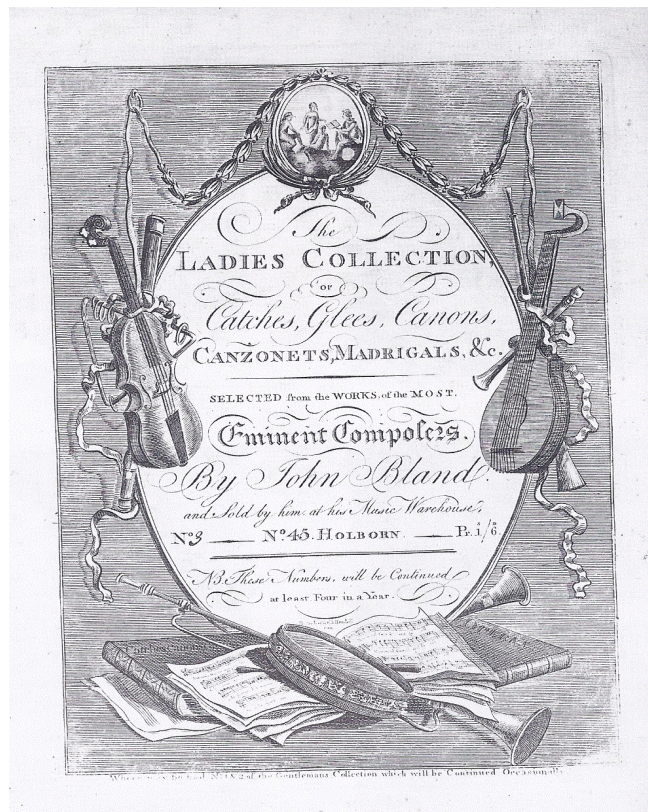 The
LADIES COLLECTION,
OF
Catches, Glees, Canons,
CANZONETS, MADRIGALS, &c.
SELECTED from the WORKS, of the MOST.
Eminent Composers.
By John Bland.
and Sold by him at his Music Warehouse,
No. 3 — No. 45. HOLBORN. — Pr. 1s/6d
NB. These Numbers, will be Continued
at least Four in a Year.
of the Gentlemans Collection which will be Continued Occasionally